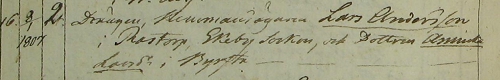 16. 3/2 2. Drängen, Hemmansägaren Lars Andersson
1807. i Thastorp, Ekeby Socken, och Dottren Annicka
Larsd. i Byrsta